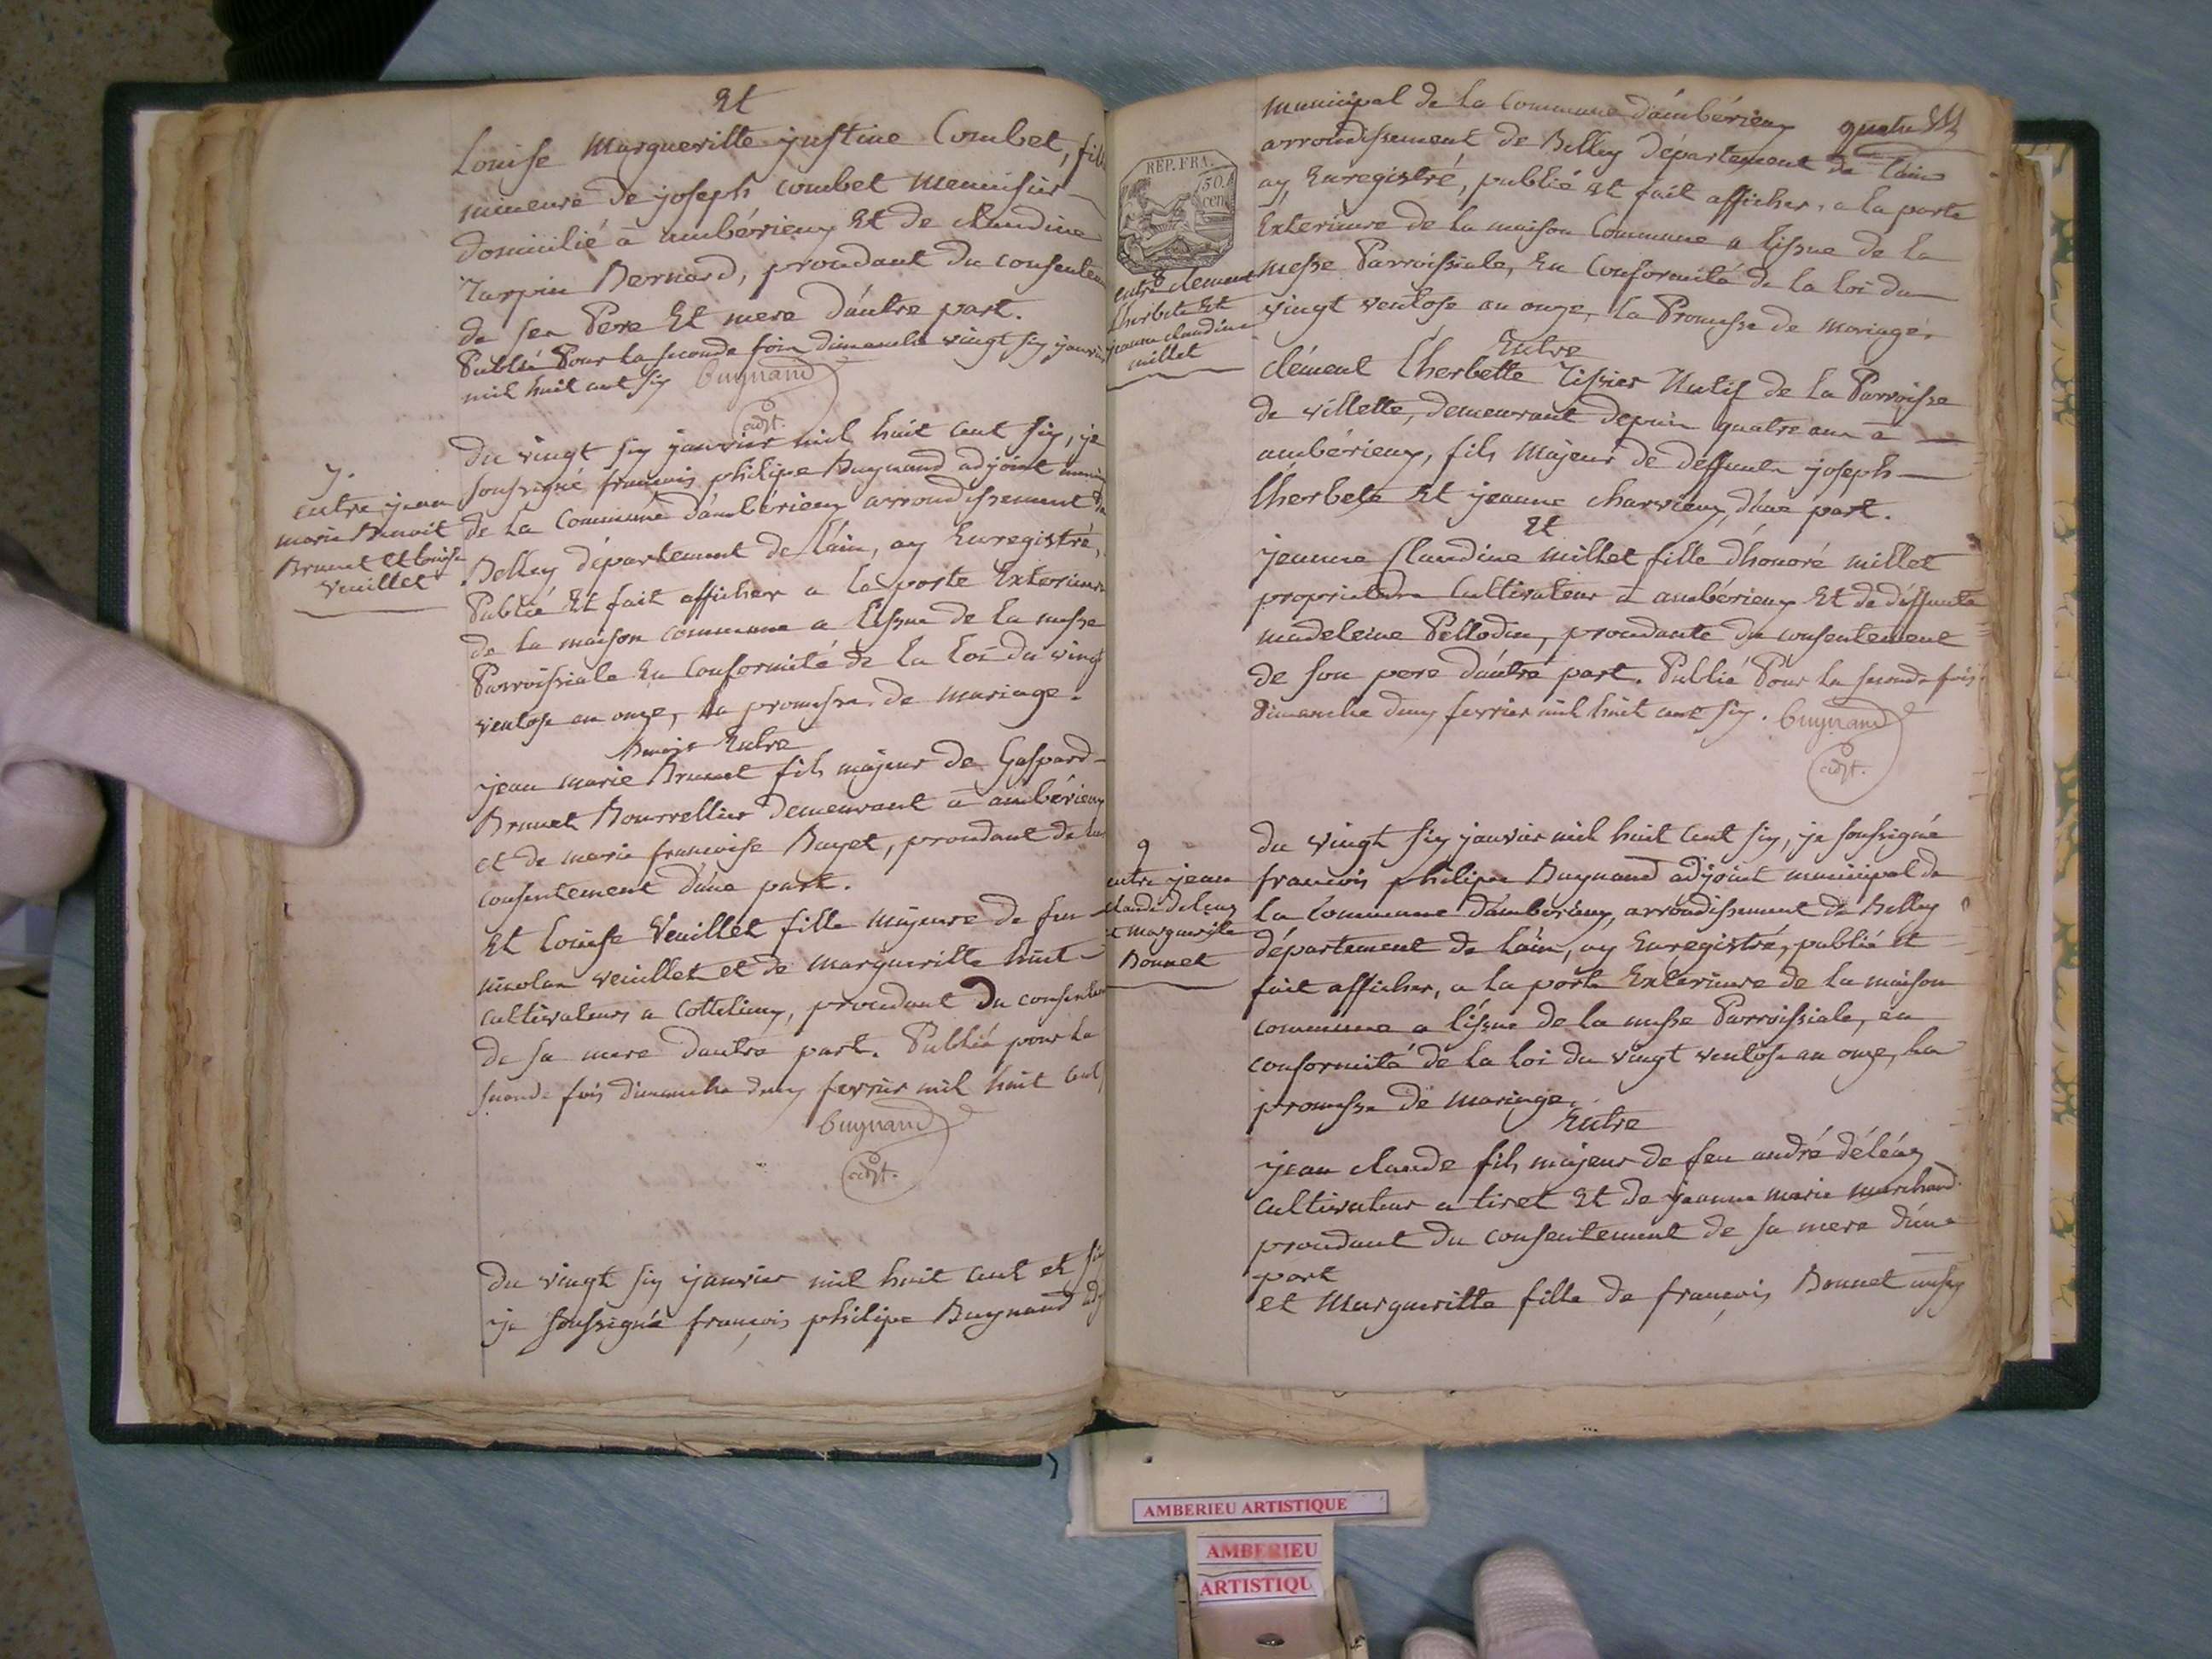 Et
Louise Margueritte justine Combet, fille
mineure de joseph combet Menuisier
domicilié à ambérieux Et de claudine
Turpin Bernard, procédant du consentem
de ses Pere Et mere d'autre part.
Publié Pour la seconde fois dimanche vingt six janvier
mil huit cent six Buynand
adjt.
7.
entre jean
marie Benoit
Brunet et louise
Veuillet
du vingt six janvier mil huit cent six, je
soussigné françois philipe Buynand adjoint
de la Commune d'ambérieux arrondissement de
Belley département de l'ain, ay Enregistré,
Publié Et fait afficher a la porte Exterieure
de la maison commune a l'issue de la messe
Parroissiale En Conformité de la loi du vingt
ventose an onze, la promesse de mariage.
Benoit Entre
jean marie Brunet fils majeur de Gaspard
Brunet Bourrellier demeurant à ambérieux
et de marie francoise Buget, procédant de
consentement d'une part.
Et louise Veuillet fille majeure de feu
nicolas veuillet et de margueritte
cultivateurs a Cottelieux, procédant Du
de sa mere d'autre part. Publié pour la
seconde fois dimanche deux fevrier mil huit cent
Buynand
adjt.
du vingt six janvier mil huit cent et six
je soussigné françois philipe Buynand adj
quatre
REP. FRA.
50.
cen
municipal de la Commune d'ambérieux
arrondissement de Belley département de l'ain
ay Enregistré, publié Et fait afficher, a la porte
Exterieure de la maison Commune a l'issue de la
messe Parroissiale, En Conformité de la loi du
vingt ventose an onze, la Promesse de mariage.
8
entre clement
l'herbete Et
jeanne claudine
millet
Entre
clément l'herbette Tissier Natif de la Parroisse
de villette, demeurant depuis quatre ans à
ambérieux, fils Majeur de deffunts joseph
l'herbete Et jeanne charvieux, d'une part.
Et
jeanne Claudine millet fille d'honoré millet
propriétaire Cultivateur à ambérieux Et de déffunte
madeleine Pellodin, procédante du consentement
de son pere d'autre part. Publié Pour la seconde fois
Dimanche deux fevrier mil huit cent six. Buynand
adjt.
9
entre jean
claude deleaz
et margueritte
Bonnet
du vingt six janvier mil huit cent six, je soussigné
francois philipe Buynand adjoint municipal de
la Commune d'ambérieux, arrondissement de Belley
département de l'ain, ay Enregistré, publié et
fait afficher, a la porte Exterieure de la maison
commune a l'issue de la messe Parroissiale, en
conformité de la loi du vingt ventose an onze, la
promesse de mariage.
Entre
jean claude fils majeur de feu andré déléaz
cultivateur a tiret Et de jeanne marie marchand
procédant du consentement de sa mere d'une
part
et Margueritte fille de françois Bonnet
AMBERIEU ARTISTIQUE
AMBERIEU
ARTISTIQU